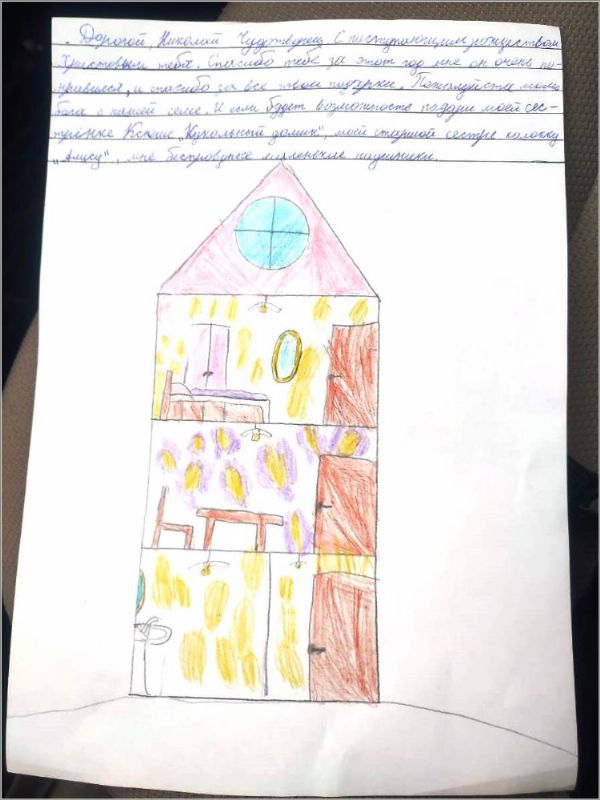 Дорогой, Николай Чудотворец С наступающим рождеством
Христовым тебя. Спасибо тебе за этот год мне он очень по-
нравился, и спасибо за все твои подарки. Пожалуйста моли
бога о нашей семе. И если будет возможность подари моей сес-
трёнке Ксюше „Кукольный домик", моей старшой сестре колонку
„Алису", мне беспроводные маленькие наушники.